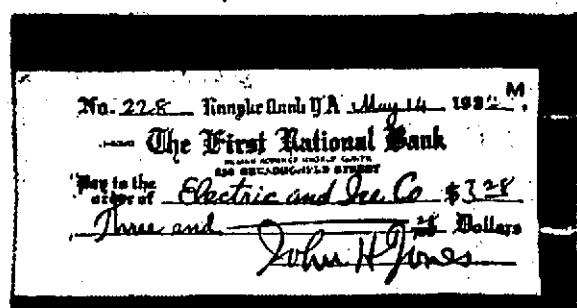 No. 228 May 14 193 M
The First National Bank
STREET
Pay to the order of Electric and Ice Co $3.28
Three and 28 Dollars
John H Jones